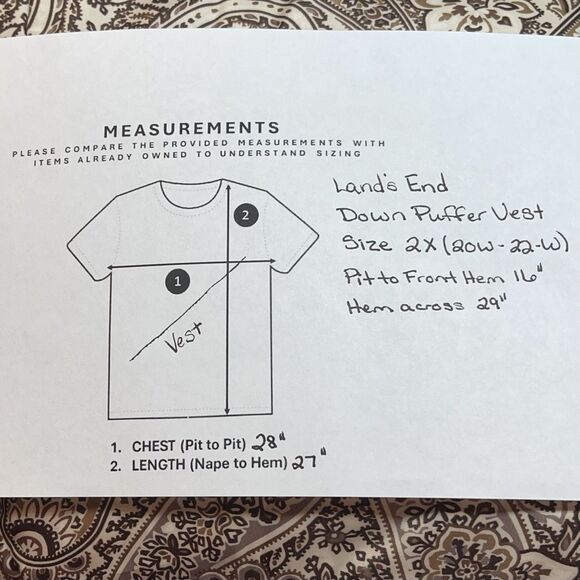 MEASUREMENTS
PLEASE COMPARE THE PROVIDED MEASUREMENTS WITH
ITEMS ALREADY OWNED TO UNDERSTAND SIZING
2
1
Vest
1. CHEST (Pit to Pit) 28"
2. LENGTH (Nape to Hem) 27"
Land's End
Down Puffer Vest
Size 2X (20W-22-W)
Pit to Front Hem 16"
Hem across 29"